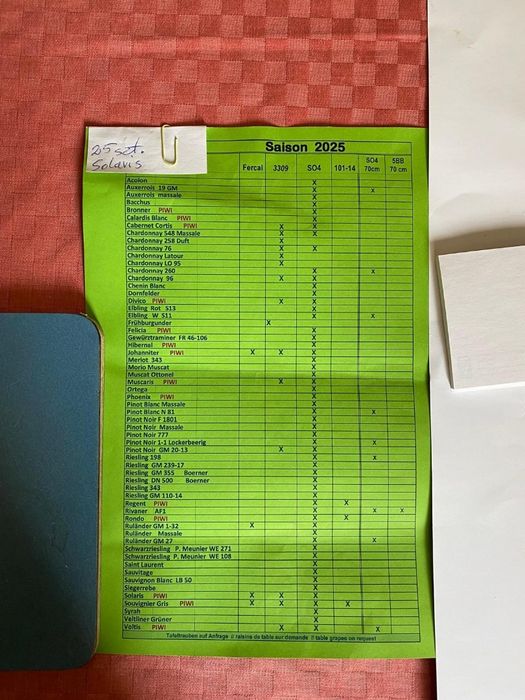 25 set.
Solaris
Saison 2025
Fercal 3309 SO4 101-14 SO4 70cm 5BB 70 cm
Acolon X
Auxerrois 19 GM X X
Auxerrois massale X
Bacchus X
Bronner PIWI X
Calardis Blanc PIWI X
Cabernet Cortis PIWI X X
Chardonnay 548 Massale X X
Chardonnay 258 Duft X
Chardonnay 76 X X
Chardonnay Latour X
Chardonnay LO 95 X
Chardonnay 260 X X
Chardonnay 96 X X
Chenin Blanc X
Dornfelder X
Divico PIWI X X
Elbling Rot 513 X
Elbling W 511 X
Frühburgunder X
Felicia PIWI X
Gewürztraminer FR 46-106 X
Hibernal PIWI X
Johanniter PIWI X X X
Merlot 343 X
Morio Muscat X
Muscat Ottonel X
Muscaris PIWI X X
Ortega X
Phoenix PIWI X
Pinot Blanc Massale X
Pinot Blanc N 81 X X
Pinot Noir F 1801 X
Pinot Noir Massale X
Pinot Noir 777 X
Pinot Noir 1-1 Lockerbeerig X
Pinot Noir GM 20-13 X X
Riesling 198 X X
Riesling GM 239-17 X
Riesling GM 355 Boerner X
Riesling DN 500 Boerner X
Riesling 343 X
Riesling GM 110-14 X
Regent PIWI X X
Rivaner AF1 X X X
Rondo PIWI X X
Ruländer GM 1-32 X
Ruländer Massale X
Ruländer GM 27 X
Schwarzriesling P. Meunier WE 271 X
Schwarzriesling P. Meunier WE 108 X
Saint Laurent X
Sauvitage X
Sauvignon Blanc LB 50 X
Siegerrebe X
Solaris PIWI X X X
Souvignier Gris PIWI X X X X
Syrah X
Veltliner Grüner X
Voltis PIWI X X X
Tafeltrauben auf Anfrage // raisins de table sur demande // table grapes on request